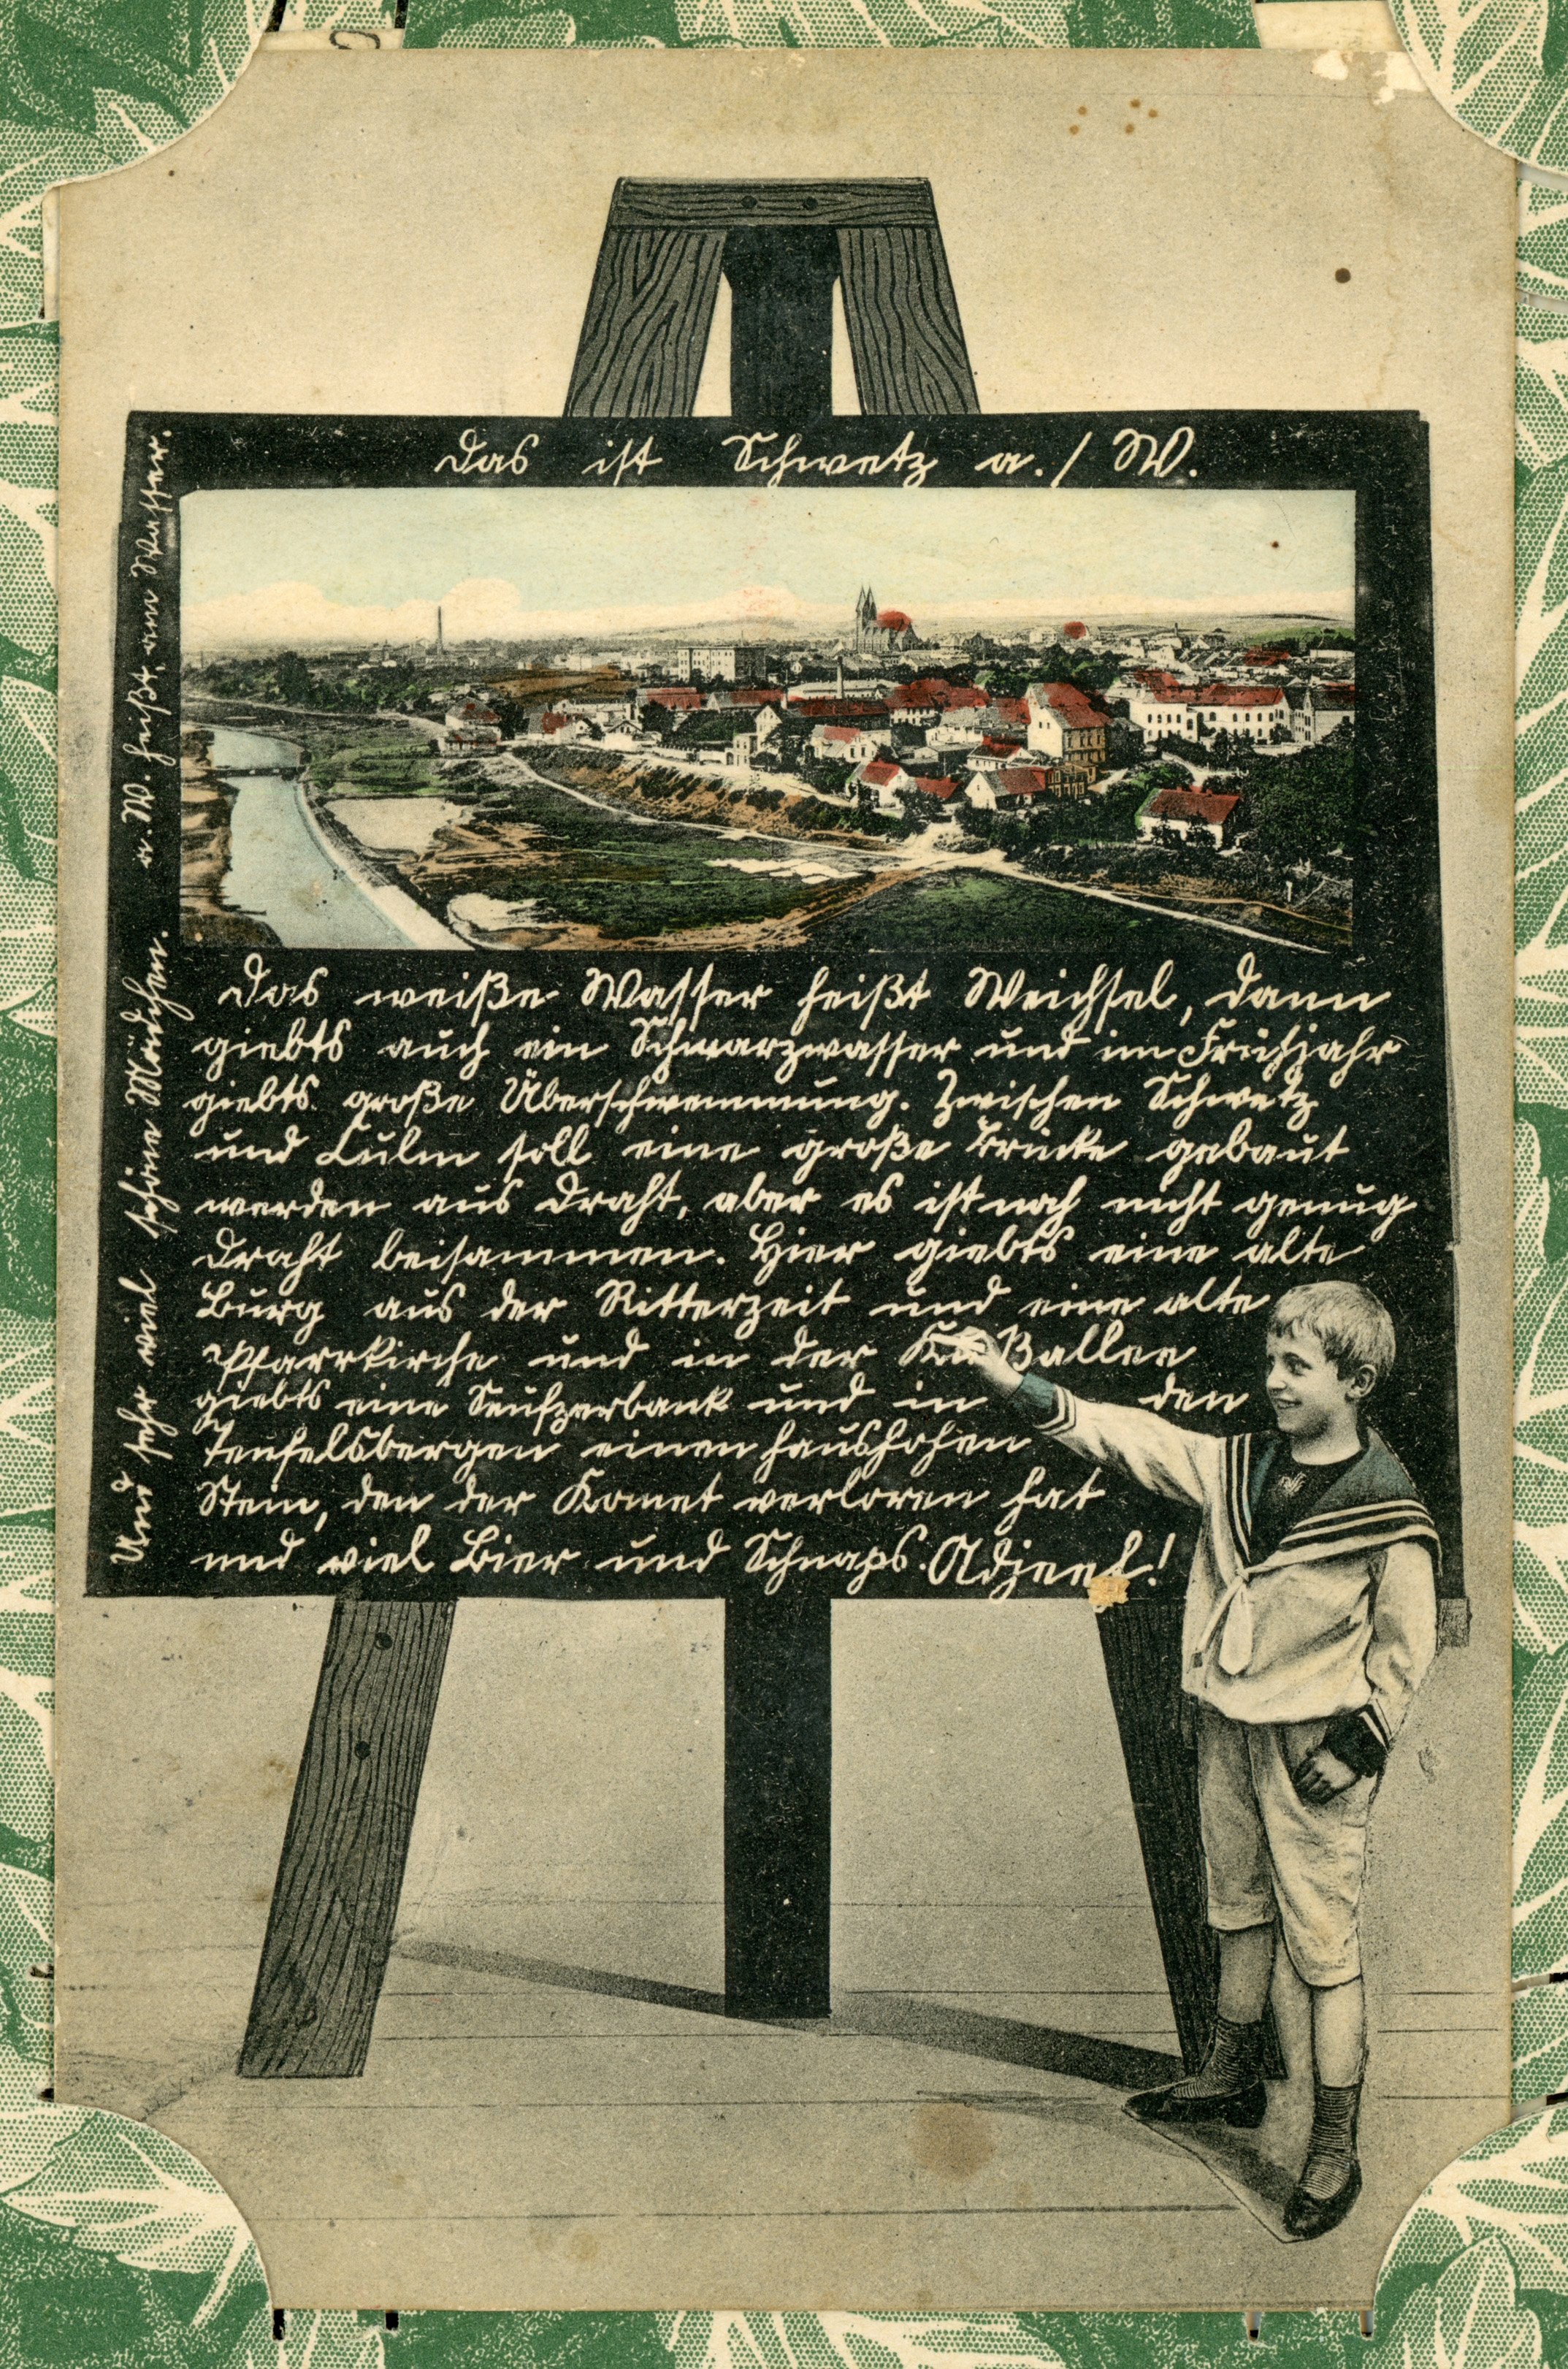 Das ist Schwetz a./W.
Das weiße Wasser heißt Weichsel, dann
giebts auch ein Schwarzwasser und im Frühjahr
giebts große Überschwemmung. Zwischen Schwetz
und Culm soll eine große Brücke gebaut
werden aus Draht, aber es ist noch nicht genug
Draht beisammen. Hier giebts eine alte
Burg aus der Ritterzeit und eine alte
Pfarrkirche und in der Kußallee
giebts eine Seufzerbank und in den
Teufelsbergen einen haushohen
Stein, den der Komet verloren hat
und viel Bier und Schnaps. Adjeeh!
Und sehr viel schöne Mädchen. a. W. heißt, am Wasser.